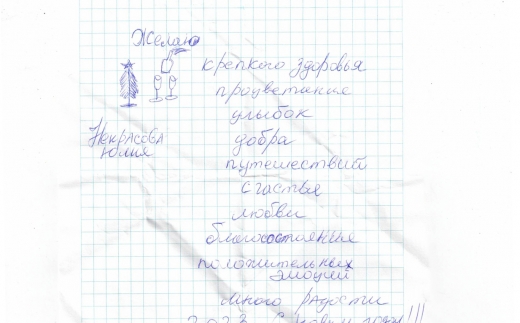 Желаю
крепкого здоровья
процветание
улыбок
Некрасова
Юлия
добра
путешествий
счастья
любви
благосостояние
положительных
эмоций
много радости
2023 С новым годом!!!